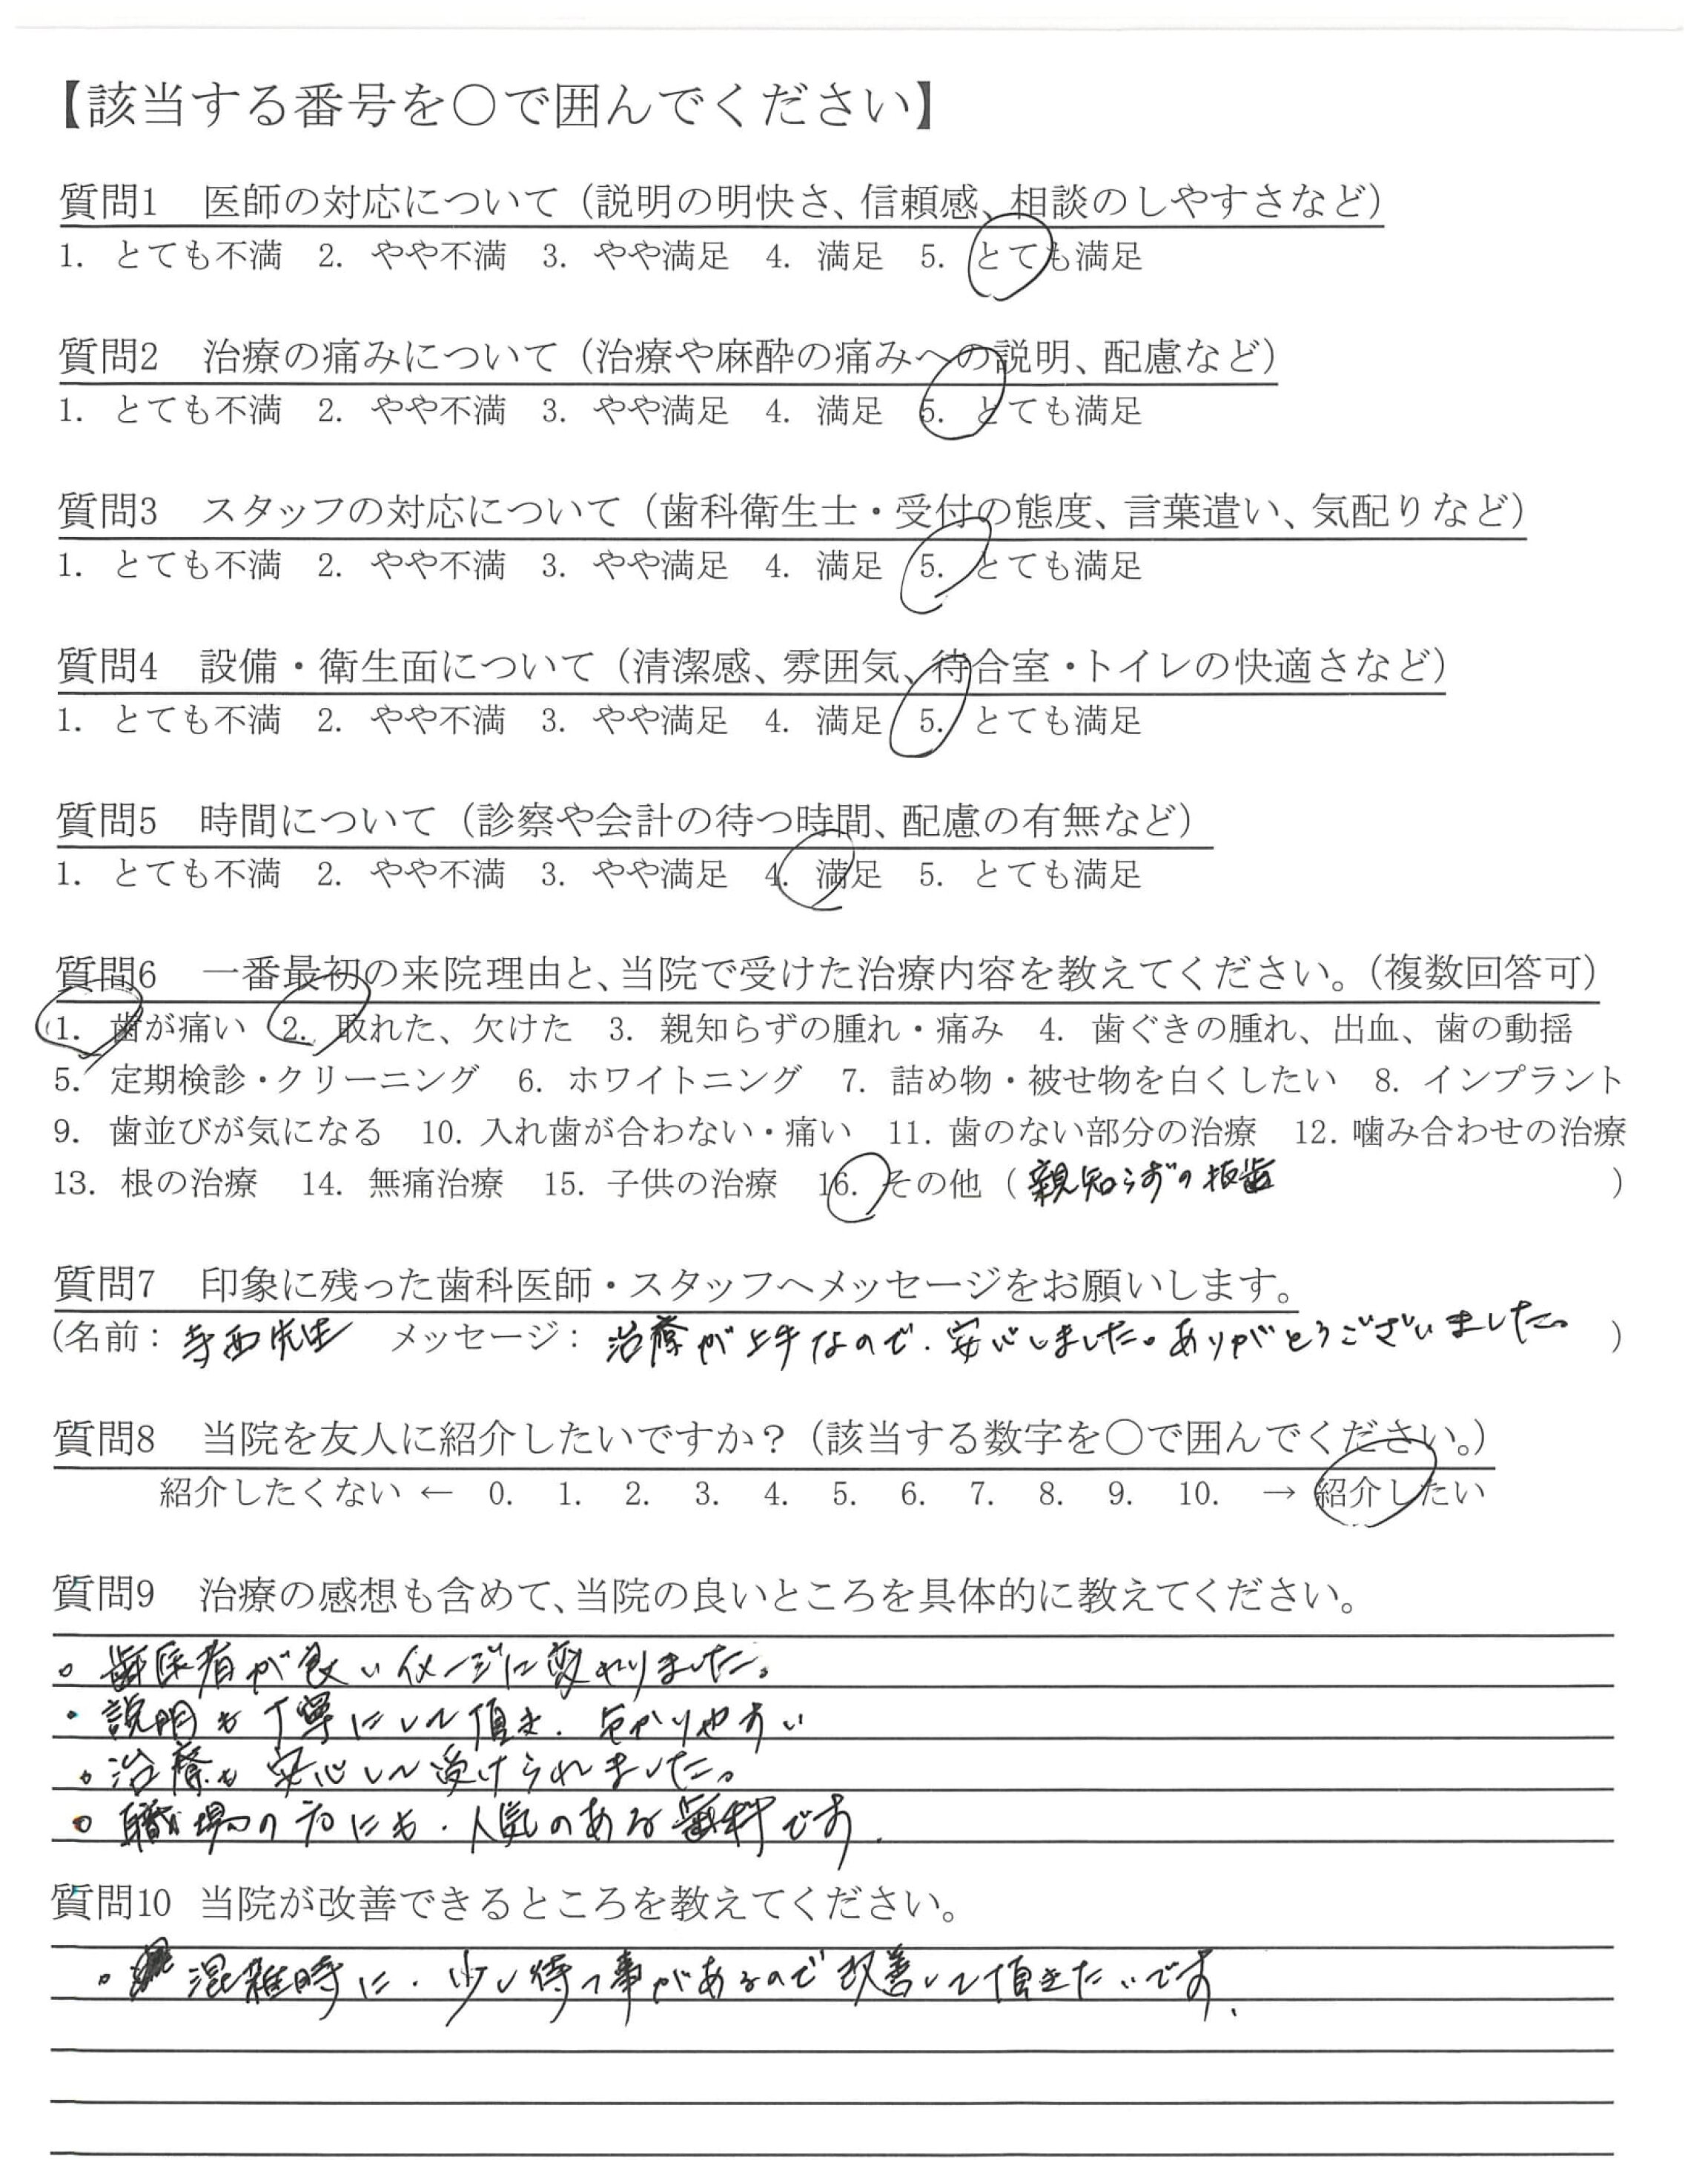 【該当する番号を○で囲んでください】
質問1　医師の対応について（説明の明快さ、信頼感、相談のしやすさなど）
1. とても不満　2. やや不満　3. やや満足　4. 満足　5. とても満足
質問2　治療の痛みについて（治療や麻酔の痛みへの説明、配慮など）
1. とても不満　2. やや不満　3. やや満足　4. 満足　5. とても満足
質問3　スタッフの対応について（歯科衛生士・受付の態度、言葉遣い、気配りなど）
1. とても不満　2. やや不満　3. やや満足　4. 満足　5. とても満足
質問4　設備・衛生面について（清潔感、雰囲気、待合室・トイレの快適さなど）
1. とても不満　2. やや不満　3. やや満足　4. 満足　5. とても満足
質問5　時間について（診察や会計の待つ時間、配慮の有無など）
1. とても不満　2. やや不満　3. やや満足　4. 満足　5. とても満足
質問6　一番最初の来院理由と、当院で受けた治療内容を教えてください。（複数回答可）
1. 歯が痛い　2. 取れた、欠けた　3. 親知らずの腫れ・痛み　4. 歯ぐきの腫れ、出血、歯の動揺
5. 定期検診・クリーニング　6. ホワイトニング　7. 詰め物・被せ物を白くしたい　8. インプラント
9. 歯並びが気になる　10. 入れ歯が合わない・痛い　11. 歯のない部分の治療　12. 噛み合わせの治療
13. 根の治療　14. 無痛治療　15. 子供の治療　16. その他（親知らずの抜歯）
質問7　印象に残った歯科医師・スタッフへメッセージをお願いします。
（名前：寺西先生　メッセージ：治療が上手なので、安心しました。ありがとうございました。）
質問8　当院を友人に紹介したいですか？（該当する数字を○で囲んでください。）
紹介したくない ← 0. 1. 2. 3. 4. 5. 6. 7. 8. 9. 10. → 紹介したい
質問9　治療の感想も含めて、当院の良いところを具体的に教えてください。
。歯医者が良いイメージに変わりました。
・説明も丁寧にして頂き、分かりやすい
。治療も安心して受けられました。
。職場の方にも、人気のある歯科です。
質問10 当院が改善できるところを教えてください。
。混雑時に、少し待つ事があるので改善して頂きたいです。